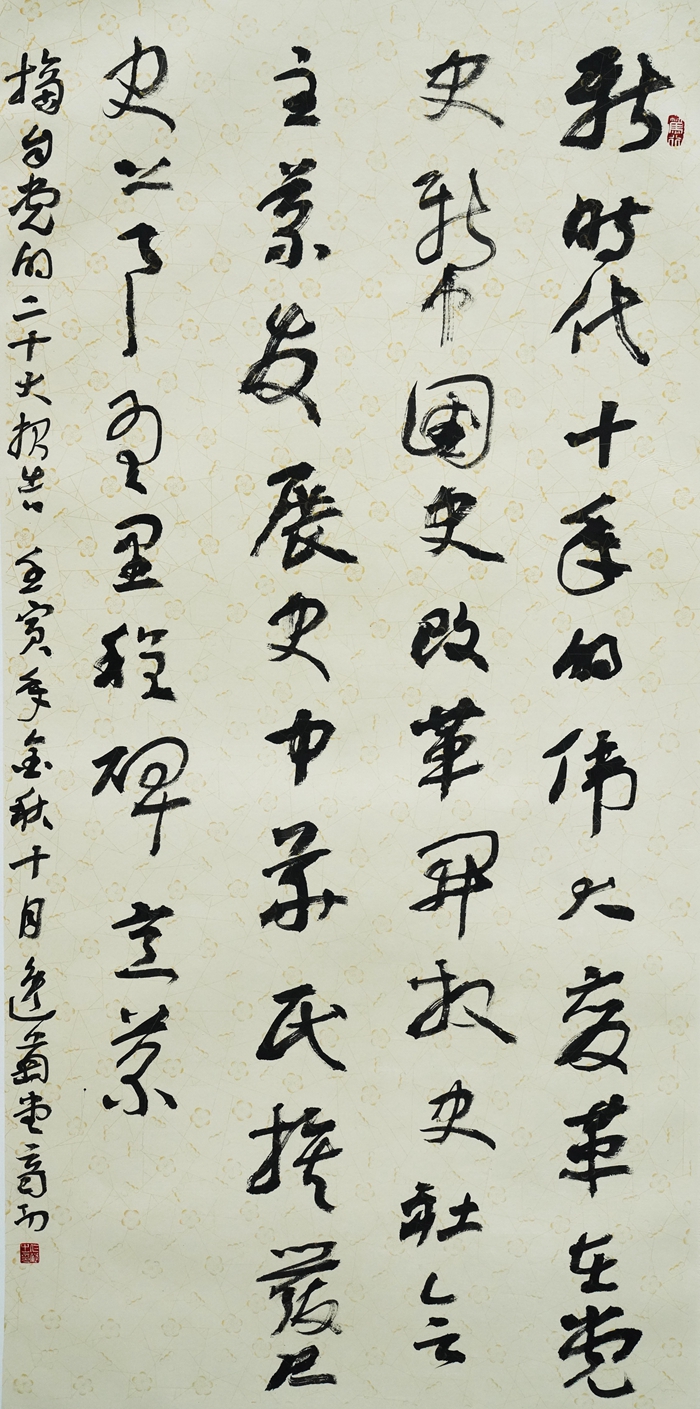 新时代十年的伟大变革在党
史新中國史改革開放史社会
主義发展史中華民族發展
史上具有里程碑意義
摘自党的二十大报告 壬寅年金秋十月